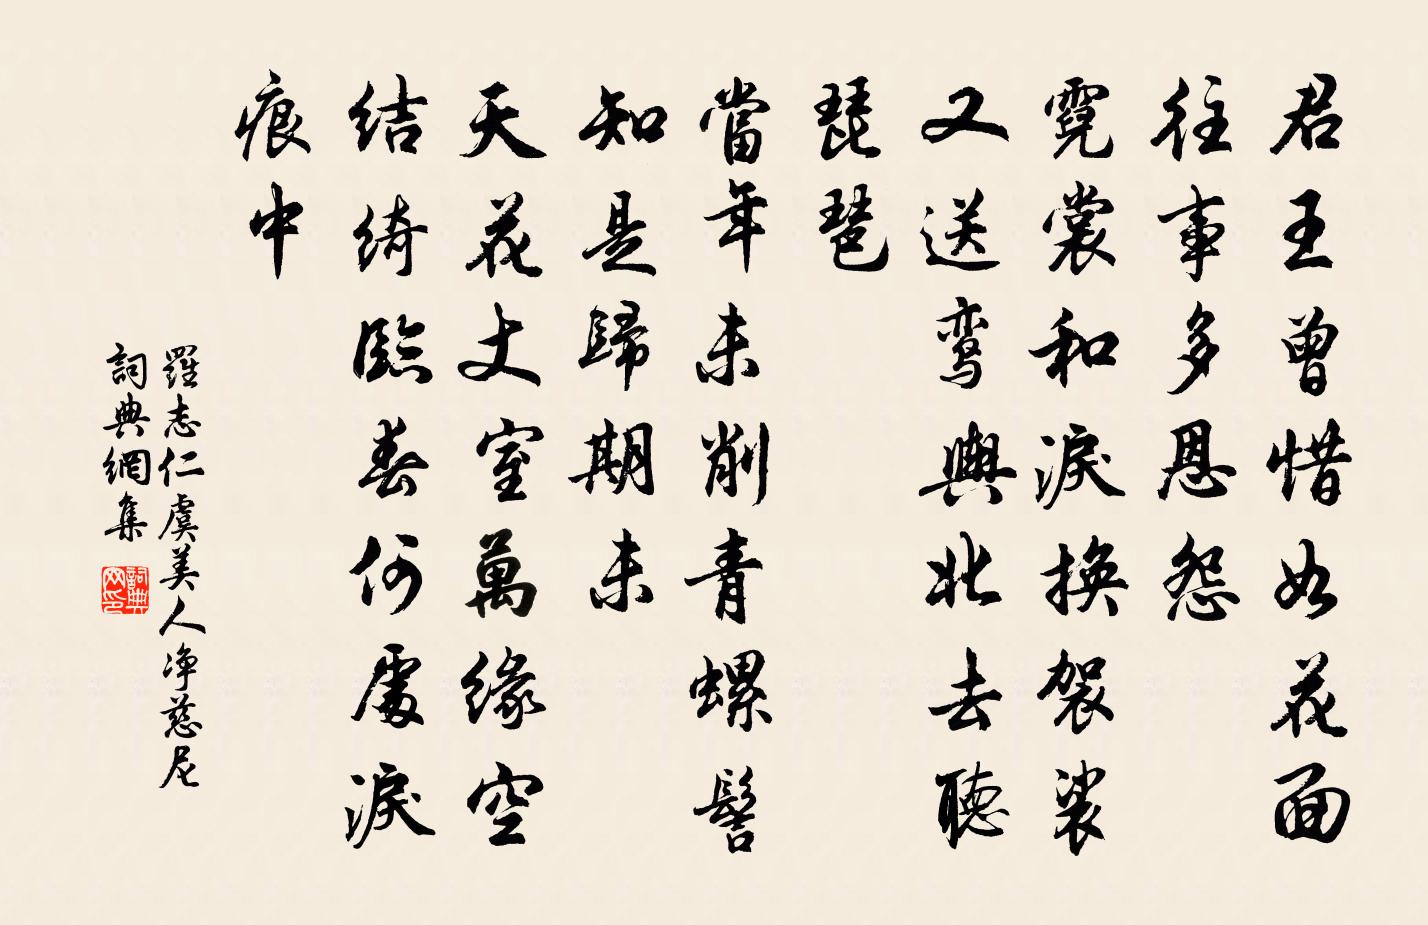 君王曾惜如花面
往事多恩怨
霓裳和淚換袈裟
又送鸞輿北去聽
琵琶
當年未削青螺髻
知是歸期未
天花丈室萬緣空
結綺臨春何處淚
痕中
羅志仁虞美人净慈尼
詞典網集
詞典网印